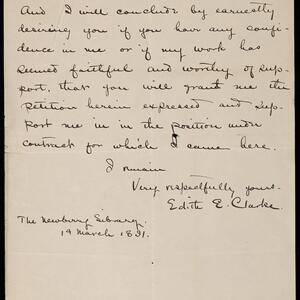 And I will conclude by earnestly
desiring you if you have any confi-
dence in me or if my work has
seemed faithful and worthy of sup-
port, that you will grant me the
petition herein expressed and sup-
port me in in the position under
contract for which I came here.
I remain
Very respectfully yours.
Edith E. Clarke.
The Newberry Library.
19 March 1891.